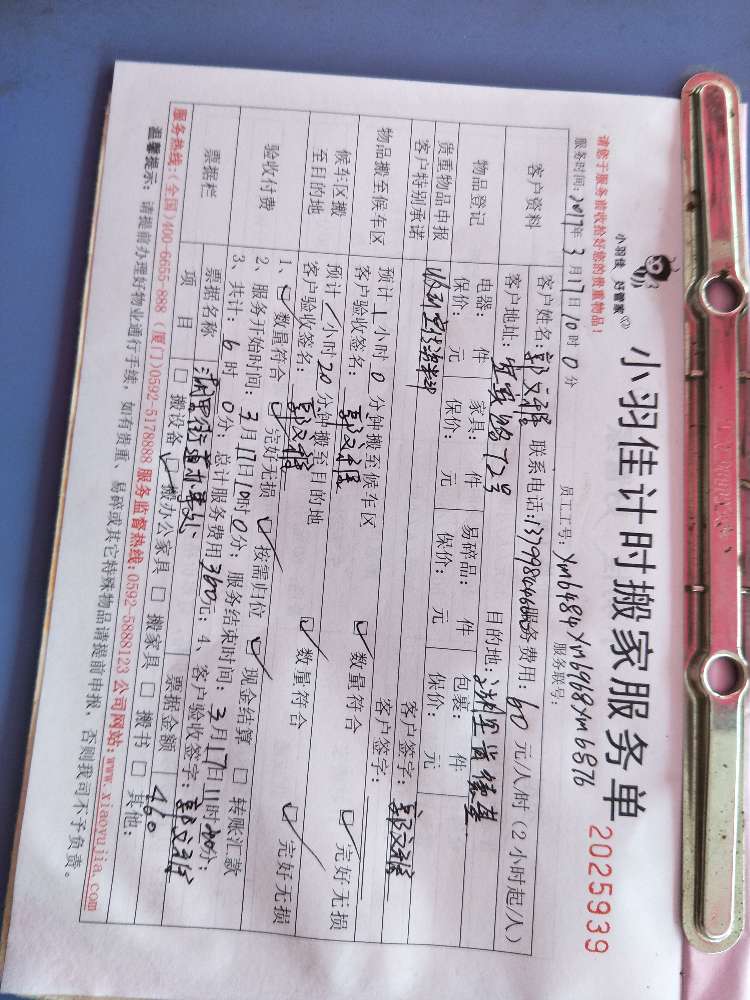 小羽佳 好管家
小羽佳计时搬家服务单
2025939
请您于服务前收拾好您的贵重物品!
员工工号: Ym6484 Ym6968 Ym6876
服务时间: 2017年 3月17日10时0分
服务联号:
客户资料
客户姓名: 郭文雅 联系电话: 服务费用: 60 元/人/时 (2小时起/人)
客户地址: 72号 目的地:
物品登记
电器: 件 家具: 件 易碎品: 件 包裹: 件
保价: 元 保价: 元 保价: 元 保价: 元
贵重物品申报
客户特别承诺
客户签字: 郭文雅
物品搬至候车区
预计 1 小时 0 分钟搬至候车区
客户签字:
客户验收签名: 郭文雅 ☑ 数量符合 ☑ 完好无损
候车区搬至目的地
预计 / 小时 20 分钟搬至目的地
客户验收签名: 郭文雅 ☑ 数量符合 ☑ 完好无损
验收付费
1、☑ 数量符合 ☑ 完好无损 ☑ 按需归位 ☑ 现金结算 □ 转账汇款
2、服务开始时间: 3月17日10时0分; 服务结束时间: 3月17日11时20分;
3、共计: 6时 0分; 总计服务费用360元; 4、客户验收签字: 郭文雅
票据栏
票据名称 票据金额 460
项 目 □ 搬设备 ☑ 搬办公家具 □ 搬家具 □ 搬书 □ 其他:
服务热线: (全国)400-6655-888 (厦门)0592-5178888 服务监督热线: 0592-5888123 公司网站: www.xiaoyujia.com
温馨提示: 请提前办理好物业通行手续, 如有贵重、易碎或其它特殊物品请提前申报, 否则我司不予负责。